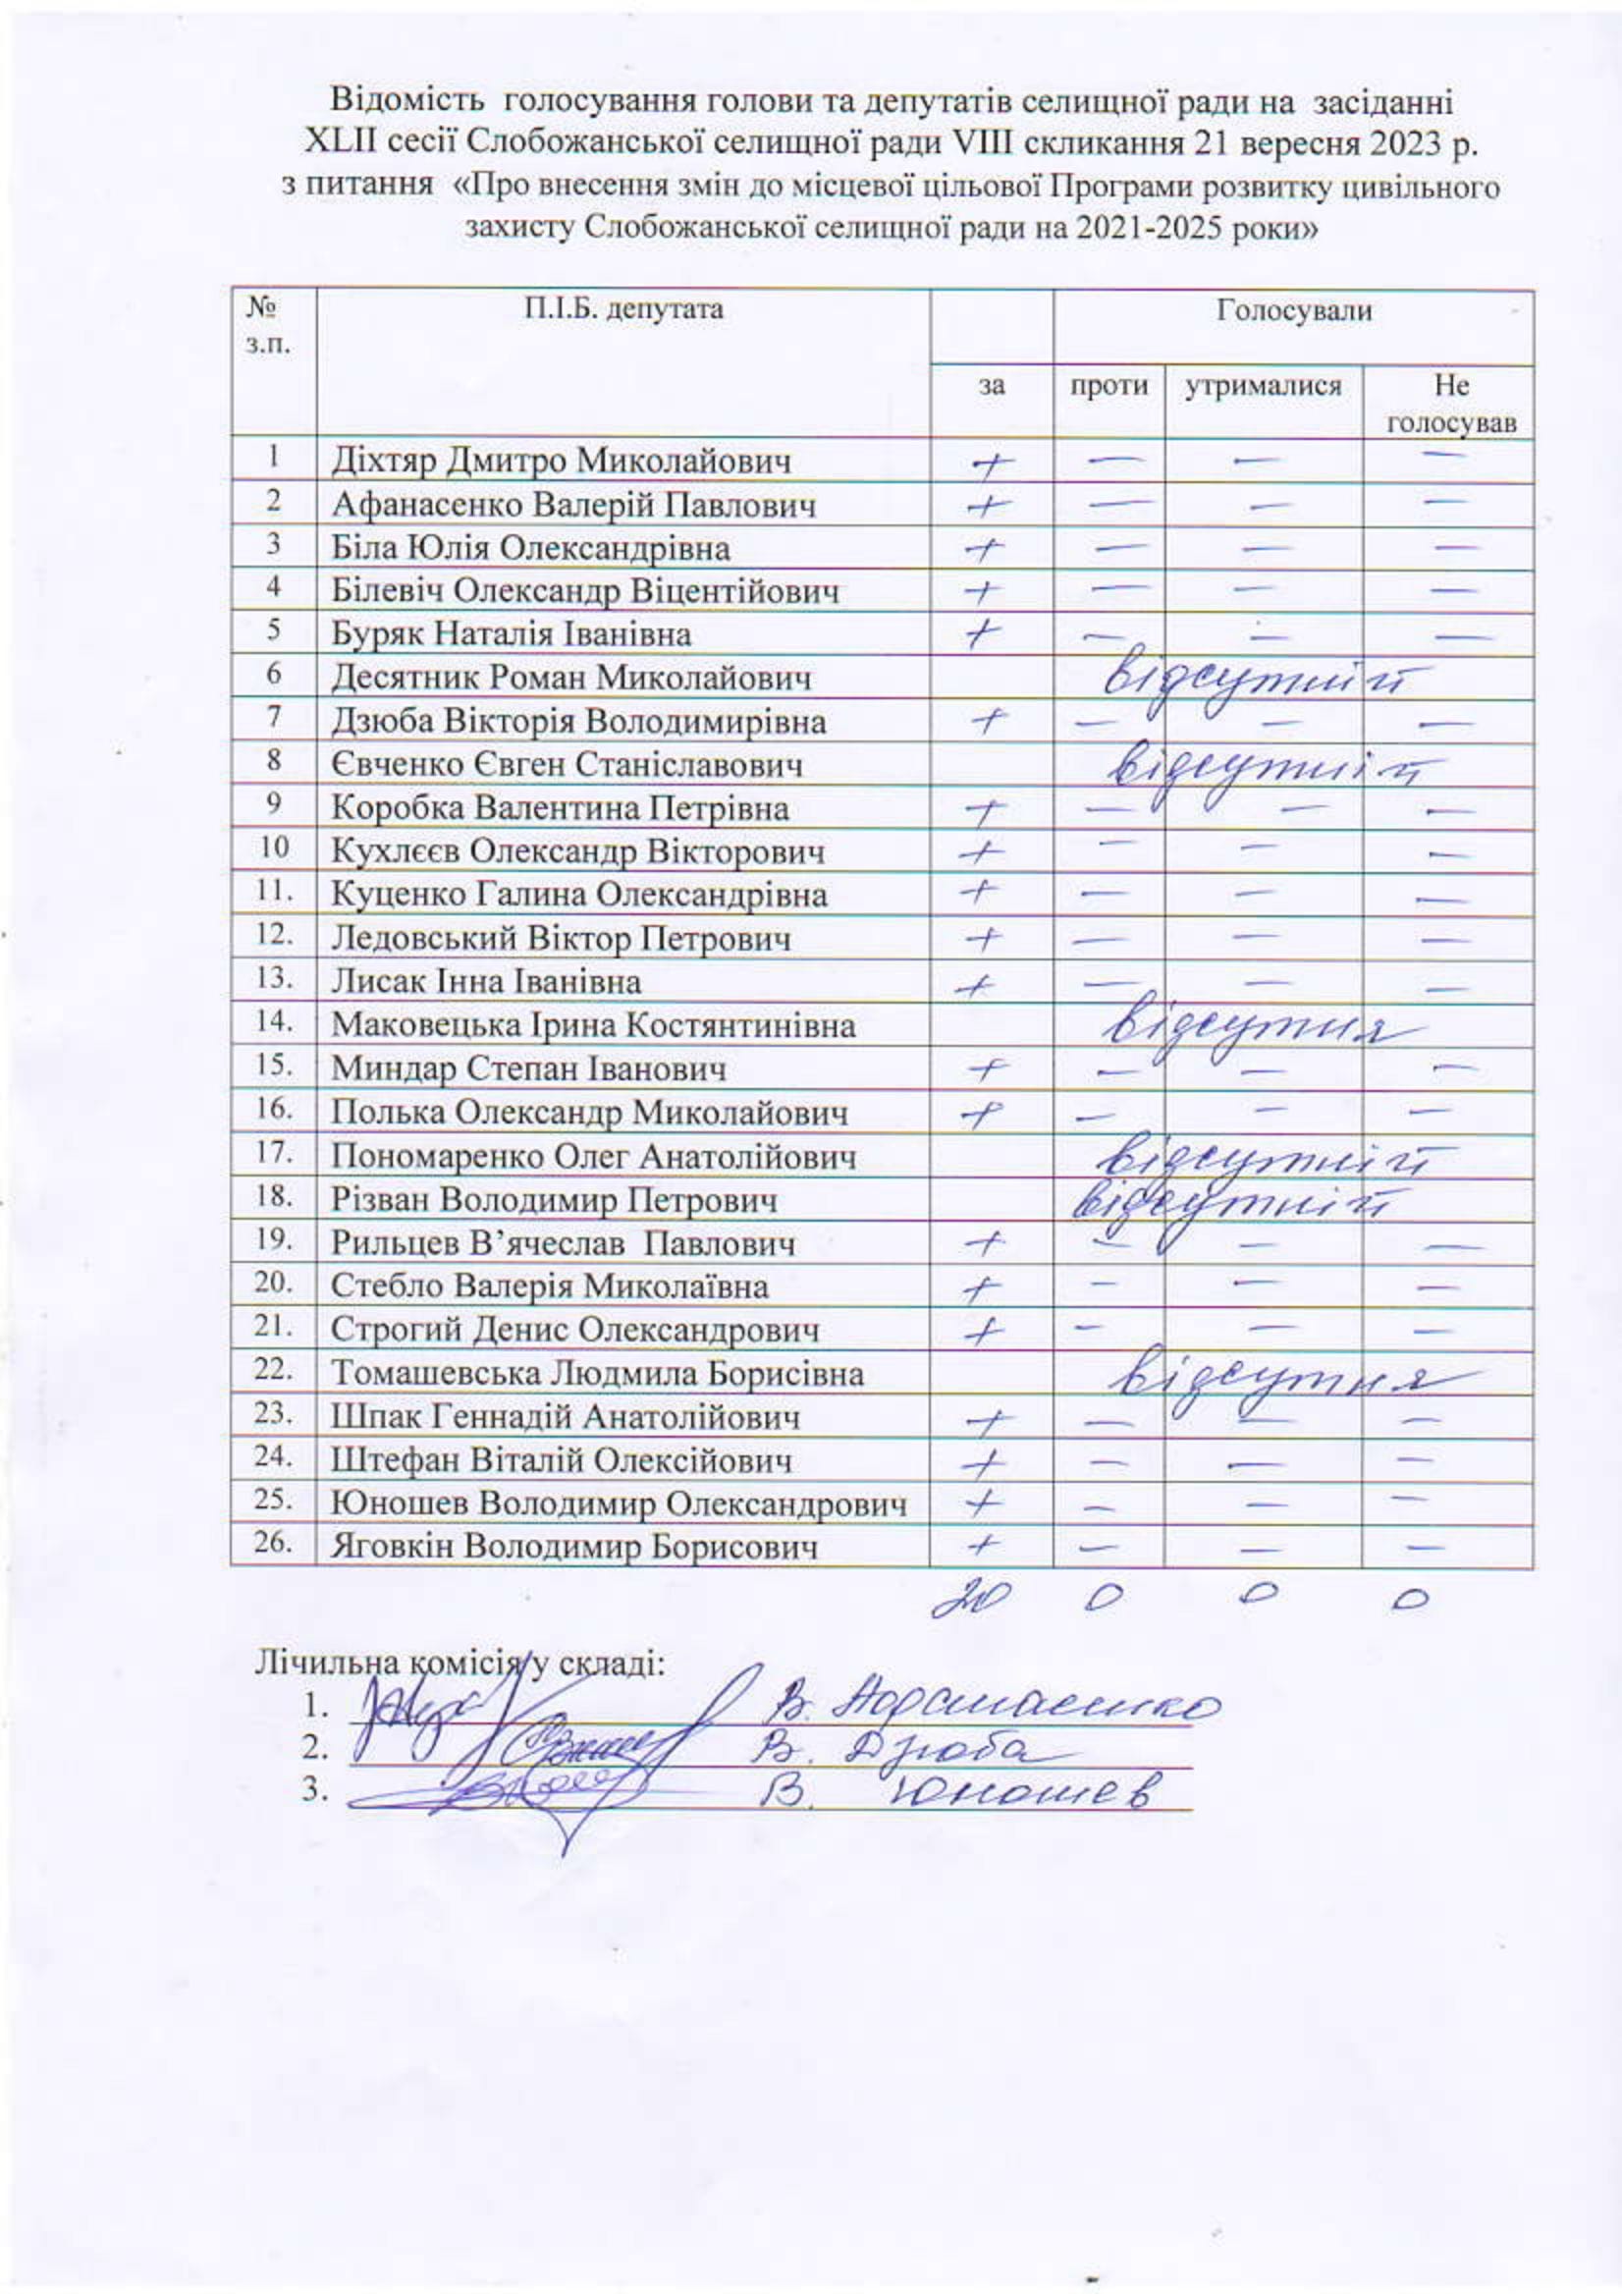 Відомість голосування голови та депутатів селищної ради на засіданні
XLII сесії Слобожанської селищної ради VIII скликання 21 вересня 2023 р.
з питання «Про внесення змін до місцевої цільової Програми розвитку цивільного
захисту Слобожанської селищної ради на 2021-2025 роки»
№ з.п. П.І.Б. депутата Голосували
за проти утрималися Не голосував
1 Діхтяр Дмитро Миколайович + — — —
2 Афанасенко Валерій Павлович + — — —
3 Біла Юлія Олександрівна + — — —
4 Білевіч Олександр Віцентійович + — — —
5 Буряк Наталія Іванівна + — — —
6 Десятник Роман Миколайович відсутній
7 Дзюба Вікторія Володимирівна + — — —
8 Євченко Євген Станіславович відсутній
9 Коробка Валентина Петрівна + — — —
10 Кухлєєв Олександр Вікторович + — — —
11. Куценко Галина Олександрівна + — — —
12. Ледовський Віктор Петрович + — — —
13. Лисак Інна Іванівна + — — —
14. Маковецька Ірина Костянтинівна відсутня
15. Миндар Степан Іванович + — — —
16. Полька Олександр Миколайович + — — —
17. Пономаренко Олег Анатолійович відсутній
18. Різван Володимир Петрович відсутній
19. Рильцев В’ячеслав Павлович + — — —
20. Стебло Валерія Миколаївна + — — —
21. Строгий Денис Олександрович + — — —
22. Томашевська Людмила Борисівна відсутня
23. Шпак Геннадій Анатолійович + — — —
24. Штефан Віталій Олексійович + — — —
25. Юношев Володимир Олександрович + — — —
26. Яговкін Володимир Борисович + — — —
20 0 0 0
Лічильна комісія у складі:
1. В. Афанасенко
2. В. Дзюба
3. В. Юношев